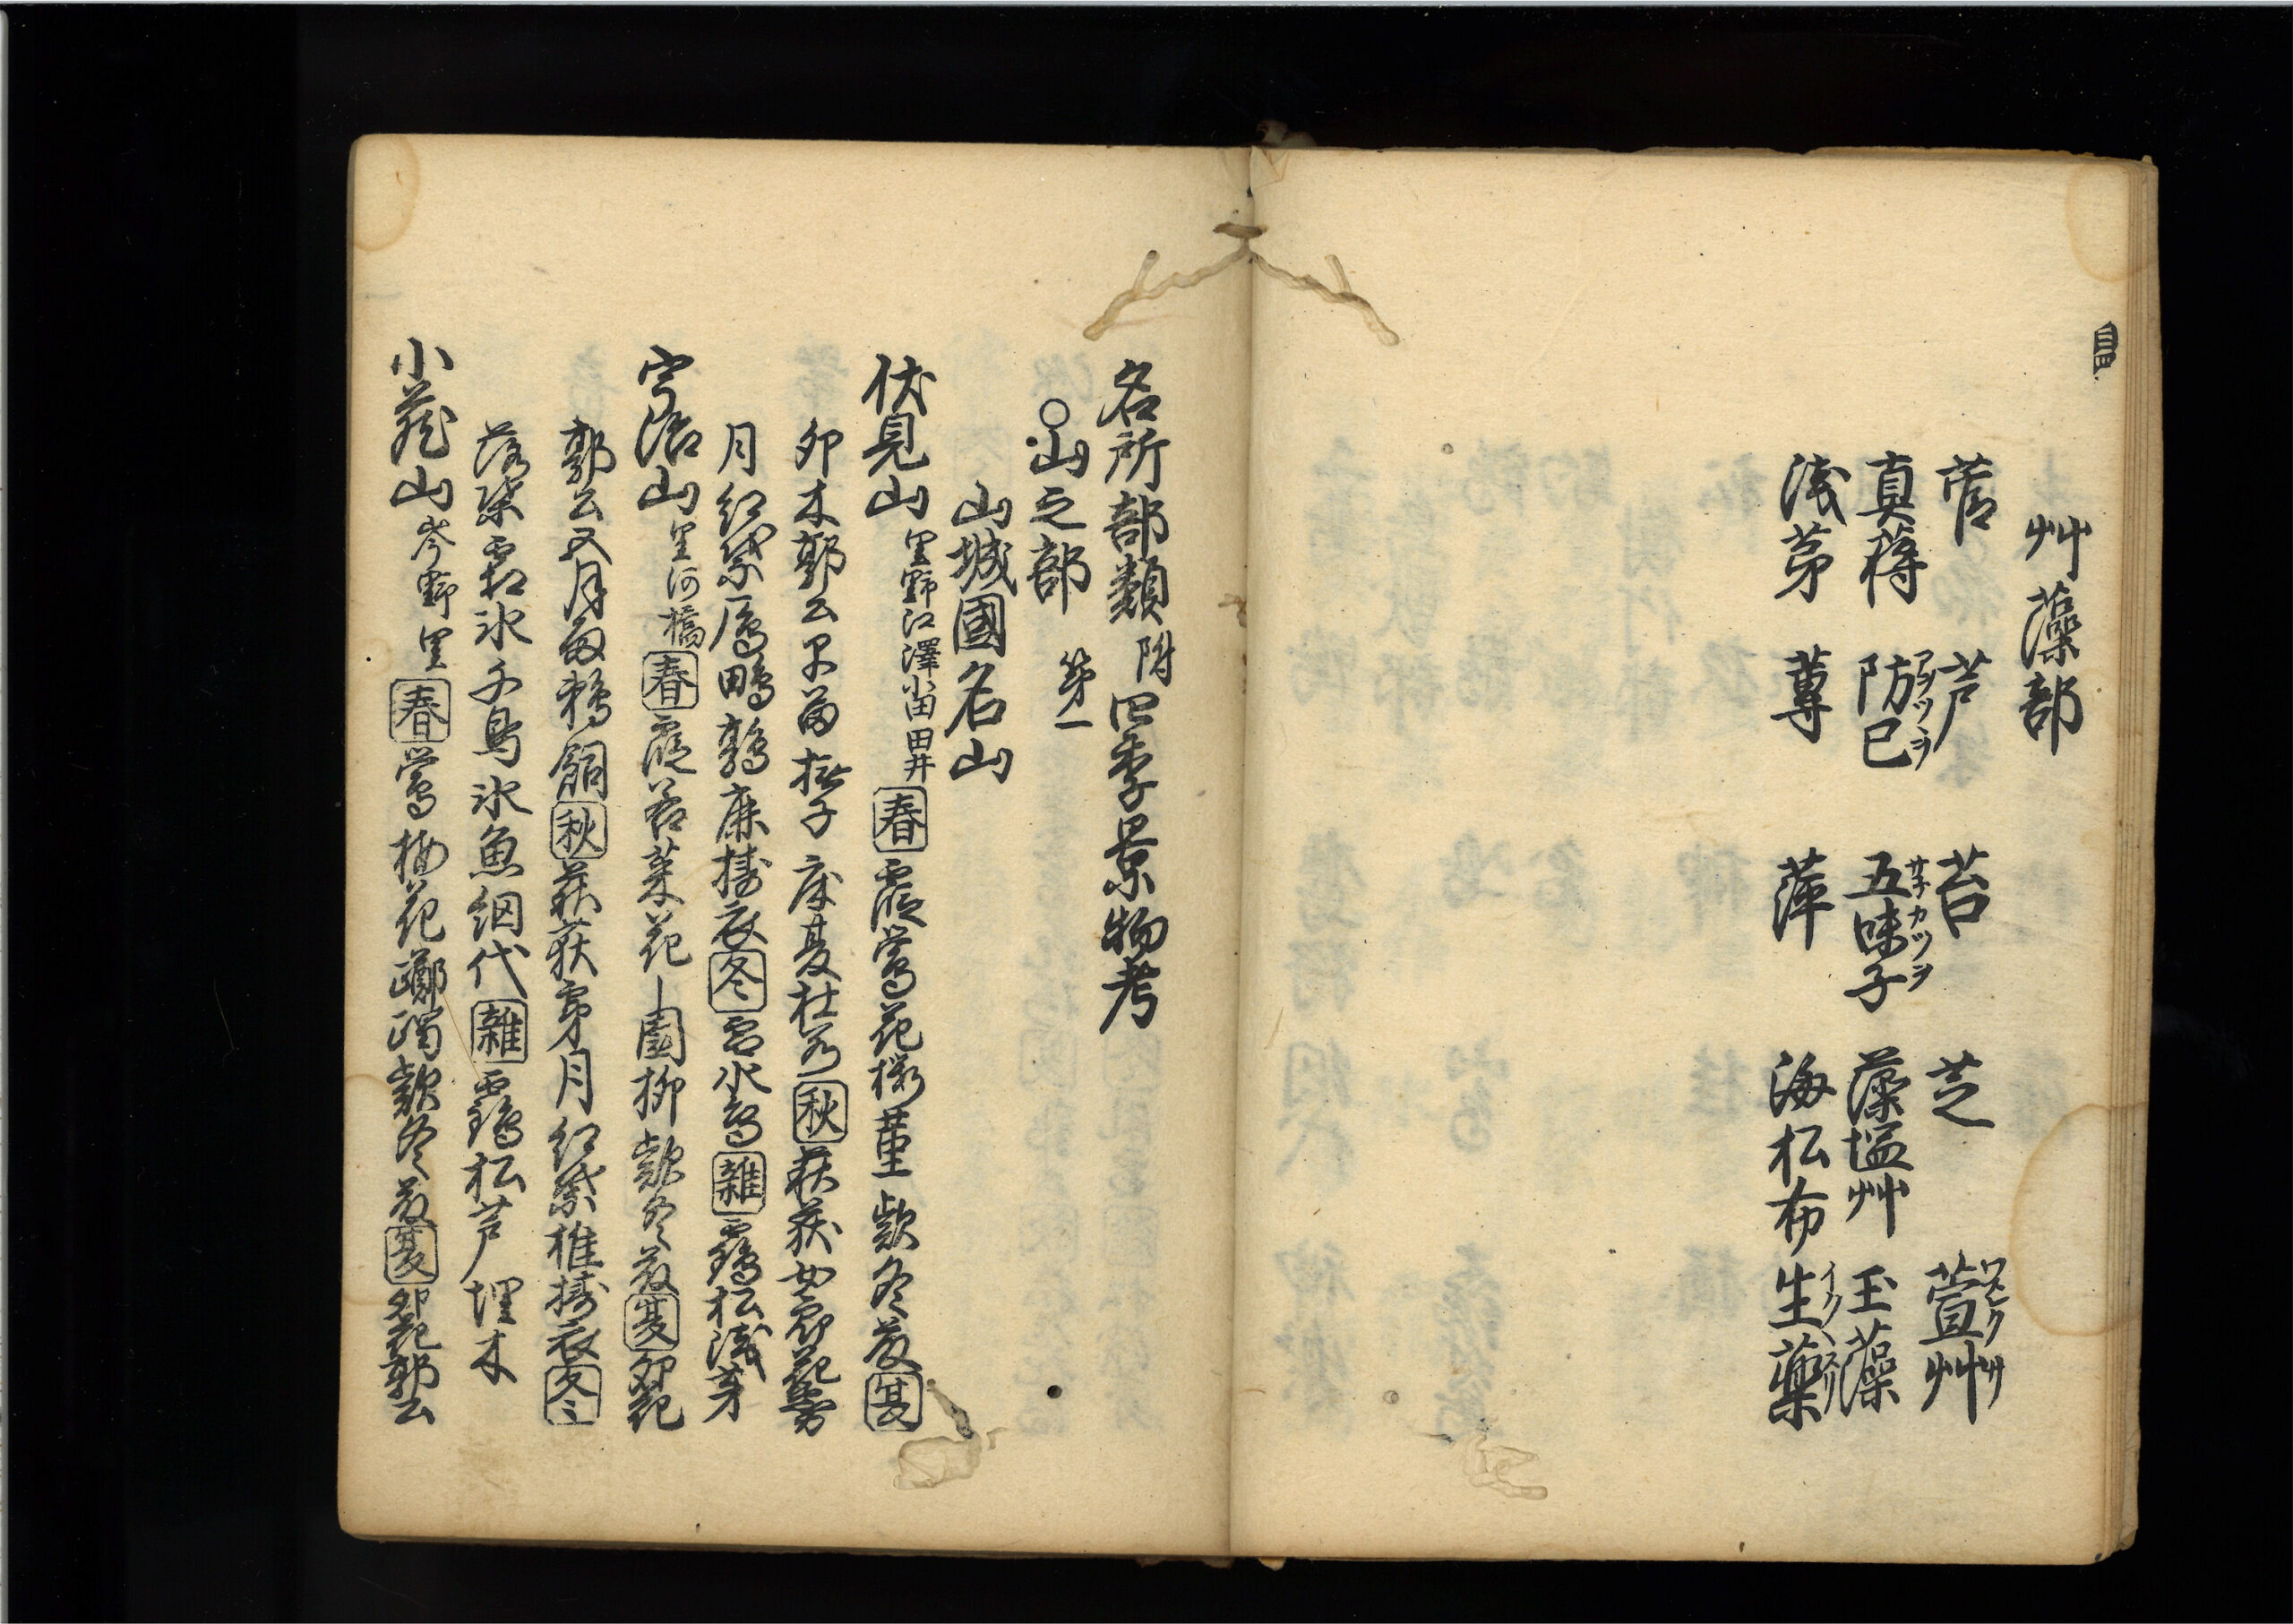 艸藻部
菅　芦　苔　芝　萱艸
真蒋　防已　五味子　藻塩艸　玉藻
浅茅　蓴　萍　海松布　生薬
名所部類 附 四季景物考
○山之部　第一
山城國名山
伏見山 里野江澤 田井 春 霞鶯花櫻菫款冬藤 夏
卯木郭公 撫子 夏 秋 萩荻女郎花
月紅葉雁鴫鶉鹿擣衣 冬 雪水鳥 雜 霧鶴松浅茅
宇治山 里河橋 春 霞若菜花 園柳款冬藤 夏 卯花
郭公五月雨鵜飼 秋 萩荻 月紅葉椎擣衣 冬
落葉霜氷千鳥氷魚網代 雜 鶴松芦埋木
小蔵山 岑野里 春 鶯梅花躑躅款冬藤 夏 卯花郭公